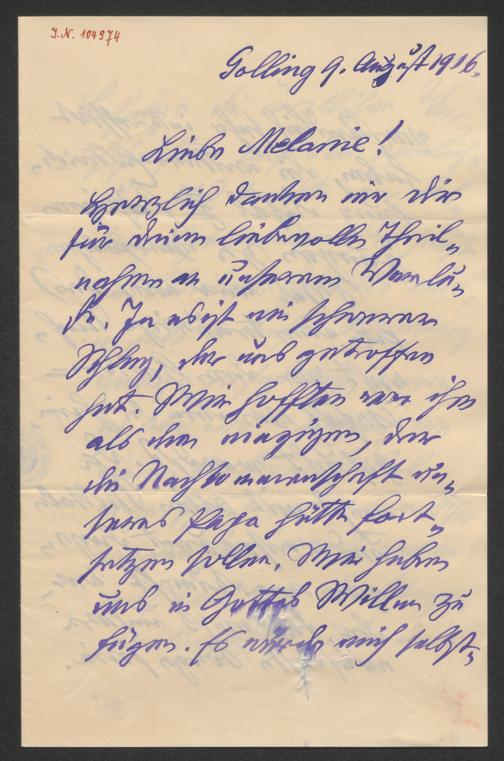 J.N. 104974
Golling 9. August 1916.
Liebe Melanie!
Herzlich danken wir Dir
für Deine liebevolle Theil-
nahme an unserem Verlu-
ste. Ja es ist ein schwerer
Schlag, der uns getroffen
hat. Wir hofften von ihm
als dem einzigen, der
die Nachkommenschaft un-
seres Papa hätte fort-
setzen sollen. Wir haben
uns in Gottes Willen zu
fügen. Es würde mich selbst-